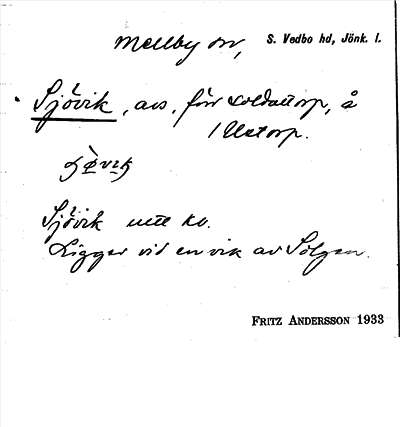 Mellby sn, S. Vedbo hd, Jönk. l.
Sjövik, avs. för soldattorp, å
1 Ustorp.
Sjövik utt. kv.
Ligger vid en vik av Solgen.
FRITZ ANDERSSON 1933